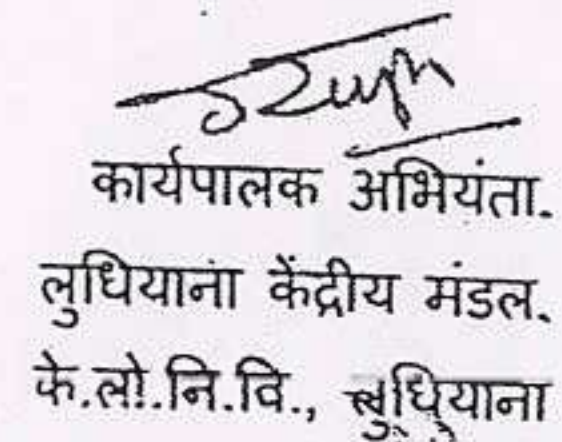 कार्यपालक अभियंता.
लुधियाना केंद्रीय मंडल.
के.लो.नि.वि., लुधियाना